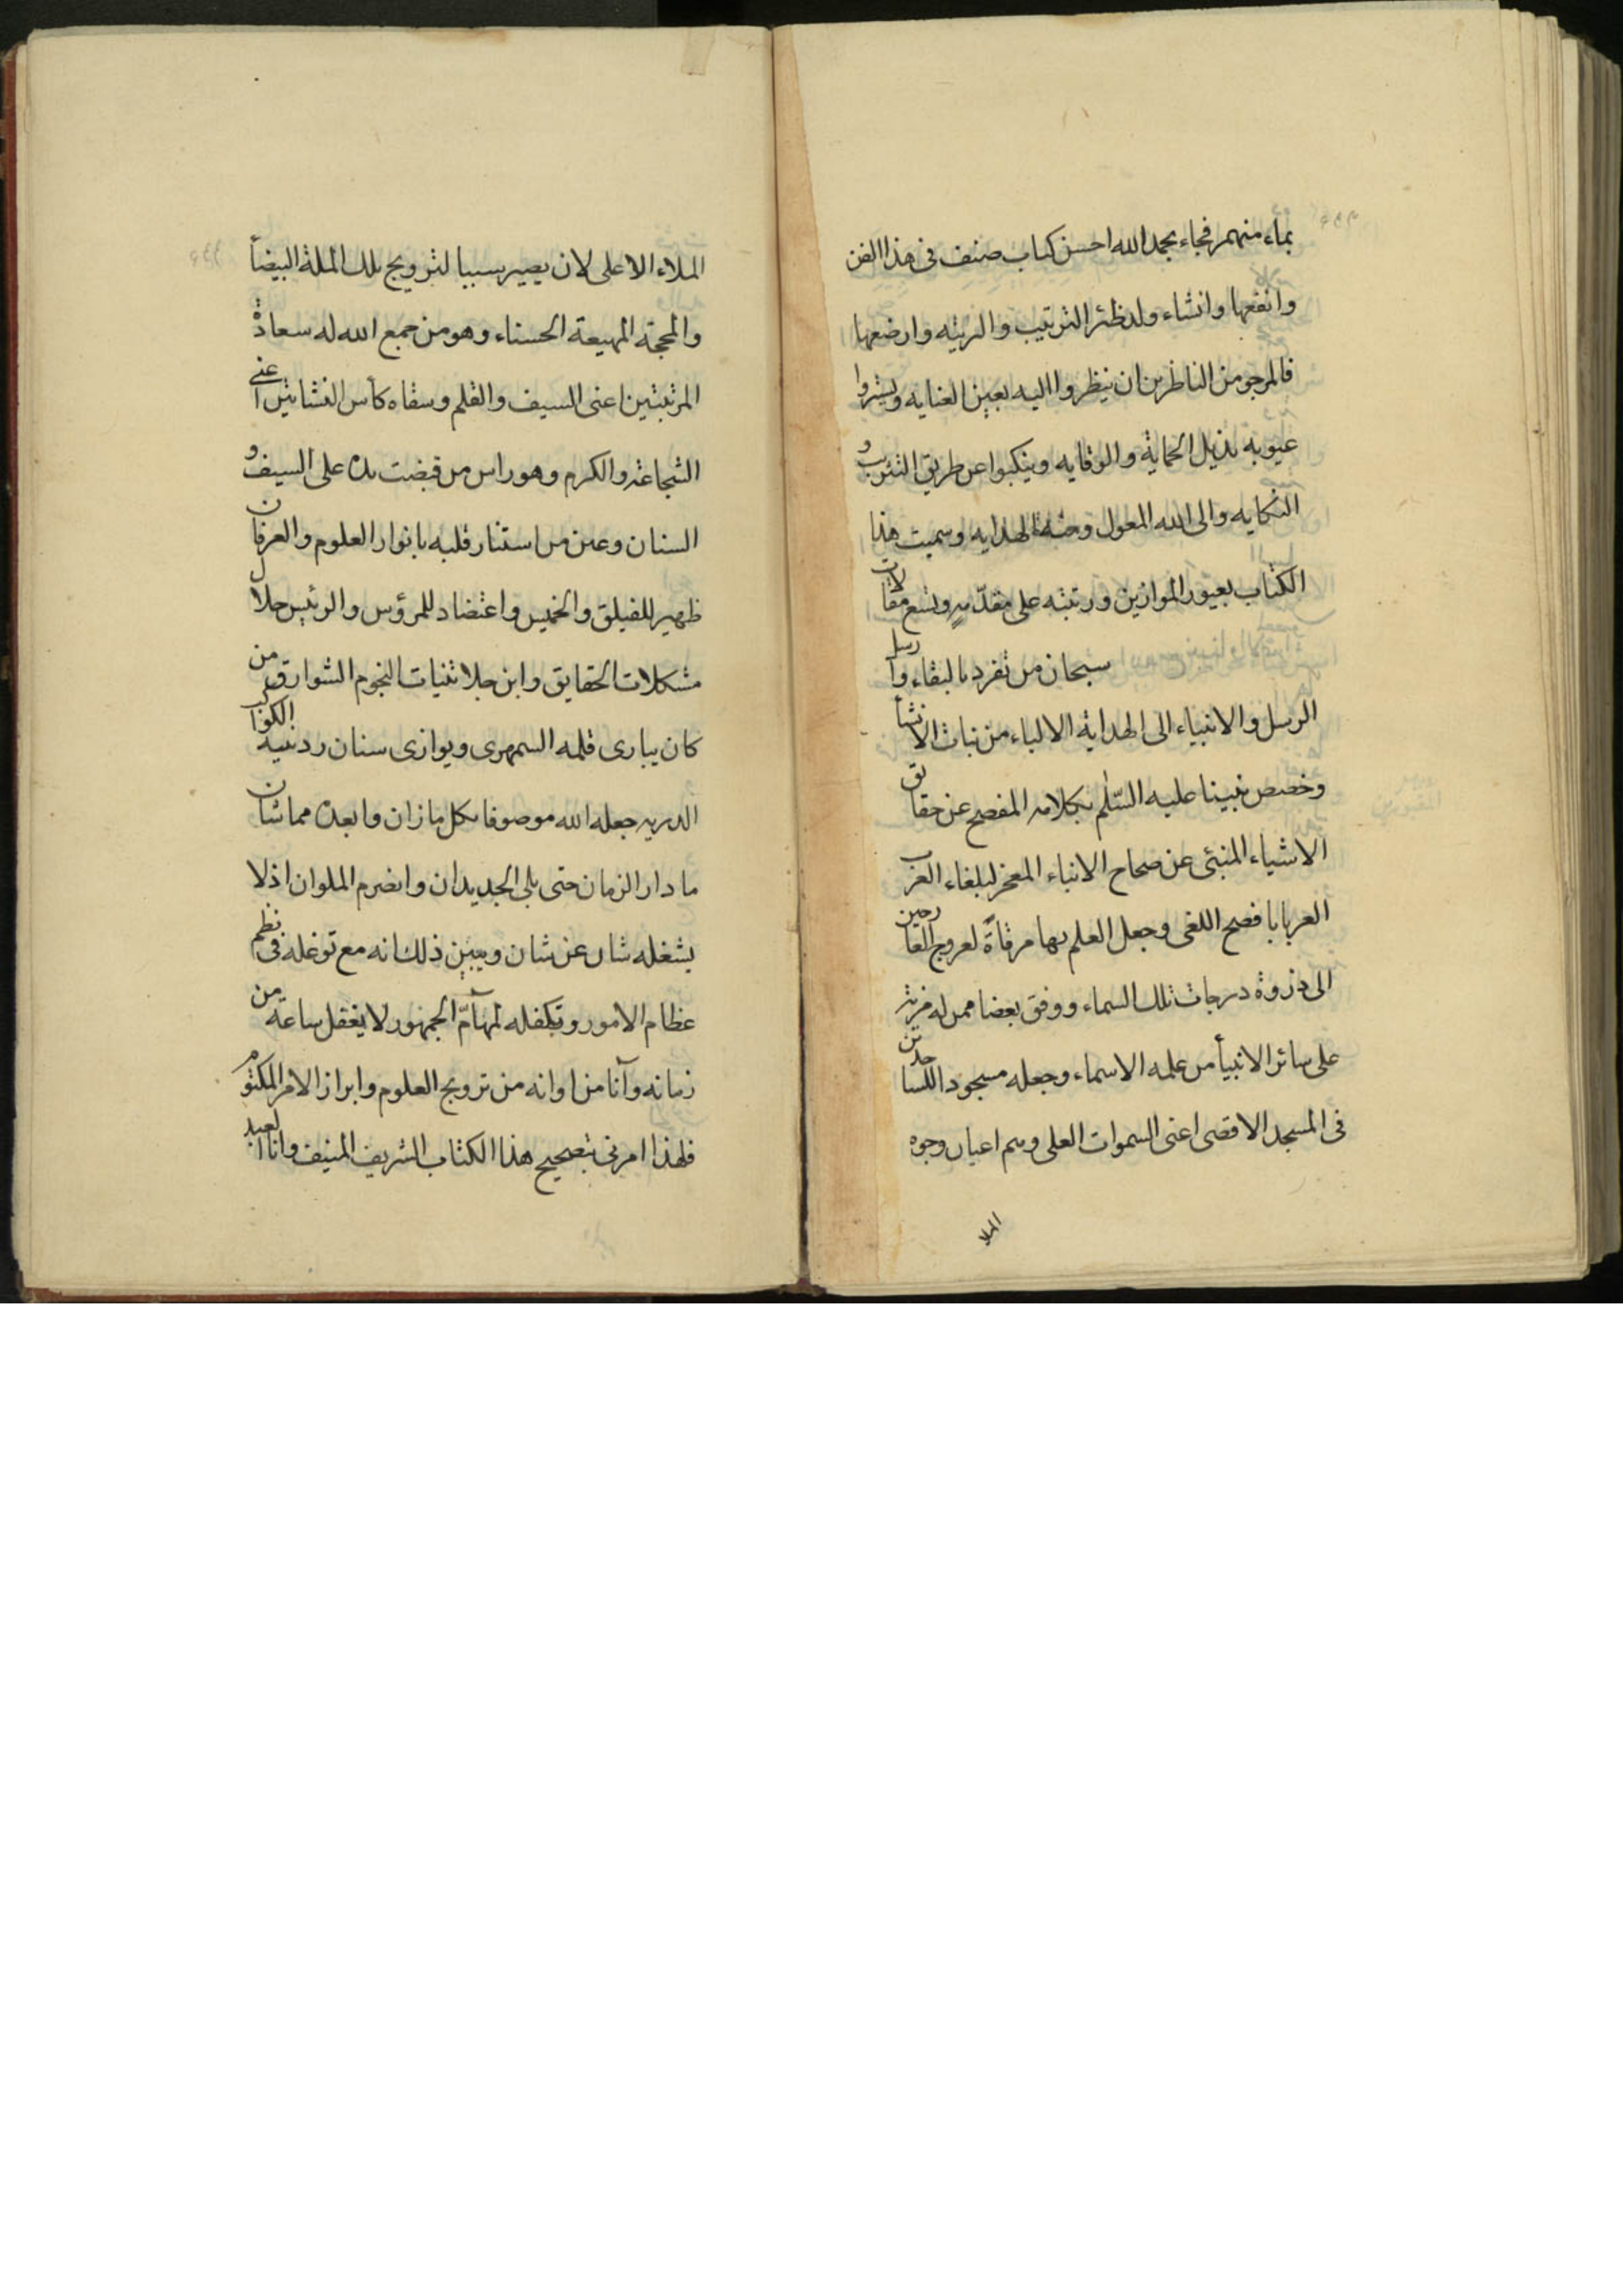 بماء منهمر فجاء بحمد الله احسن كتاب صنف فى هذا الفن
وانفعها وانشاء ولد ظئر الترتيب والتربيه وارضعها
فالمرجو من الناظرين ان ينظروا اليه بعين العنايه ويستروا
عيوبه بذيل الحماية والوقايه وينكبوا عن طريق التثريب و
النكايه والى الله المعول ومنه الهدايه وسميت هذا
الكتاب بعيون الموازين ورتبته على مقدمه وتسع مقالات
سبحان من تفرد بالبقاء وارسل
الرسل والانبياء الى الهداية الالباء من نبات الانشأ
وخصص نبينا عليه السّلم بكلامه المفصح عن حقايق
الاشياء المنبئ عن صحاح الانباء المعجز لبلغاء العرب
العربا بافصح اللغى وجعل العلم بها مرقاةً لعروج العارجين
الى ذروة درجات تلك السماء ووفق بعضا ممن له مزية
على سائر الانبيأ من علمه الاسماء وجعله مسجود الساجدين
فى المسجد الاقصى اعنى السموات العلى وهم اعيان وجوه
الملا
الملاء الاعلى لان يصير سببا لترويج تلك الملة البيضأ
والمحجة المهيعة الحسناء وهو من جمع الله له سعادة
المرتبتين اعنى السيف والقلم وسقاه كأس النشاتين اعنى
الشجاعة والكرم وهو راس من قبضت يده على السيف و
السنان وعين من استنار قلبه بانوار العلوم والعرفان
ظهير للفيلق والخميس واعتضاد للمرؤس والرئيس حلال
مشكلات الحقايق وابن جلا ثنيات النجوم الشوارق من
كان يبارى قلمه السمهرى ويوازى سنان ردينيه الكواكب
الدريه جعله الله موصوفا بكل ما زان وابعده مما شان
ما دار الزمان حتى بلى الجديدان وانصرم الملوان اذ لا
يشغله شان عن شان ويبين ذلك انه مع توغله فى نظم
عظام الامور وتكفله لمهامّ الجمهور لا يغفل ساعة من
زمانه وآنا من اوانه من ترويج العلوم وابراز الامر المكتوم
فلهذا امرنى بتصحيح هذا الكتاب الشريف المنيف وانا العبد